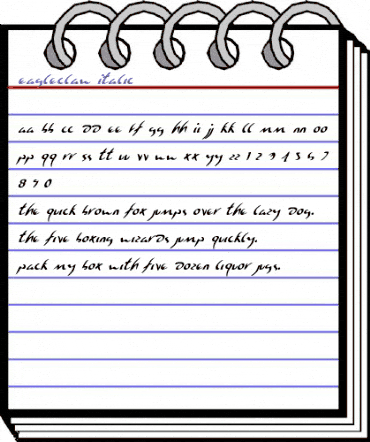 eagleclaw italic
aa bb cc DD ee ff gg hh ii jj kk ll mm nn oo
pp qq rr ss tt uu vv ww xx yy zz 1 2 3 4 5 6 7
8 9 0
the quick brown fox jumps over the lazy Dog.
the five boxing wizarDs jump quickly.
pack my box with five Dozen liquor jugs.